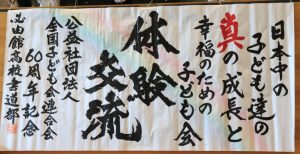 日本中の
子ども達の
真の成長と
幸福のための
子ども会
体験
交流
公益社団法人
全国子ども会連合会
60周年記念
由館高校書道部